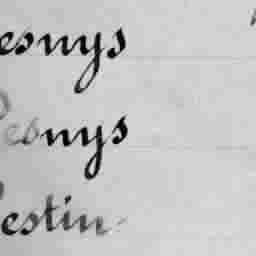 esnys
esnys
estin